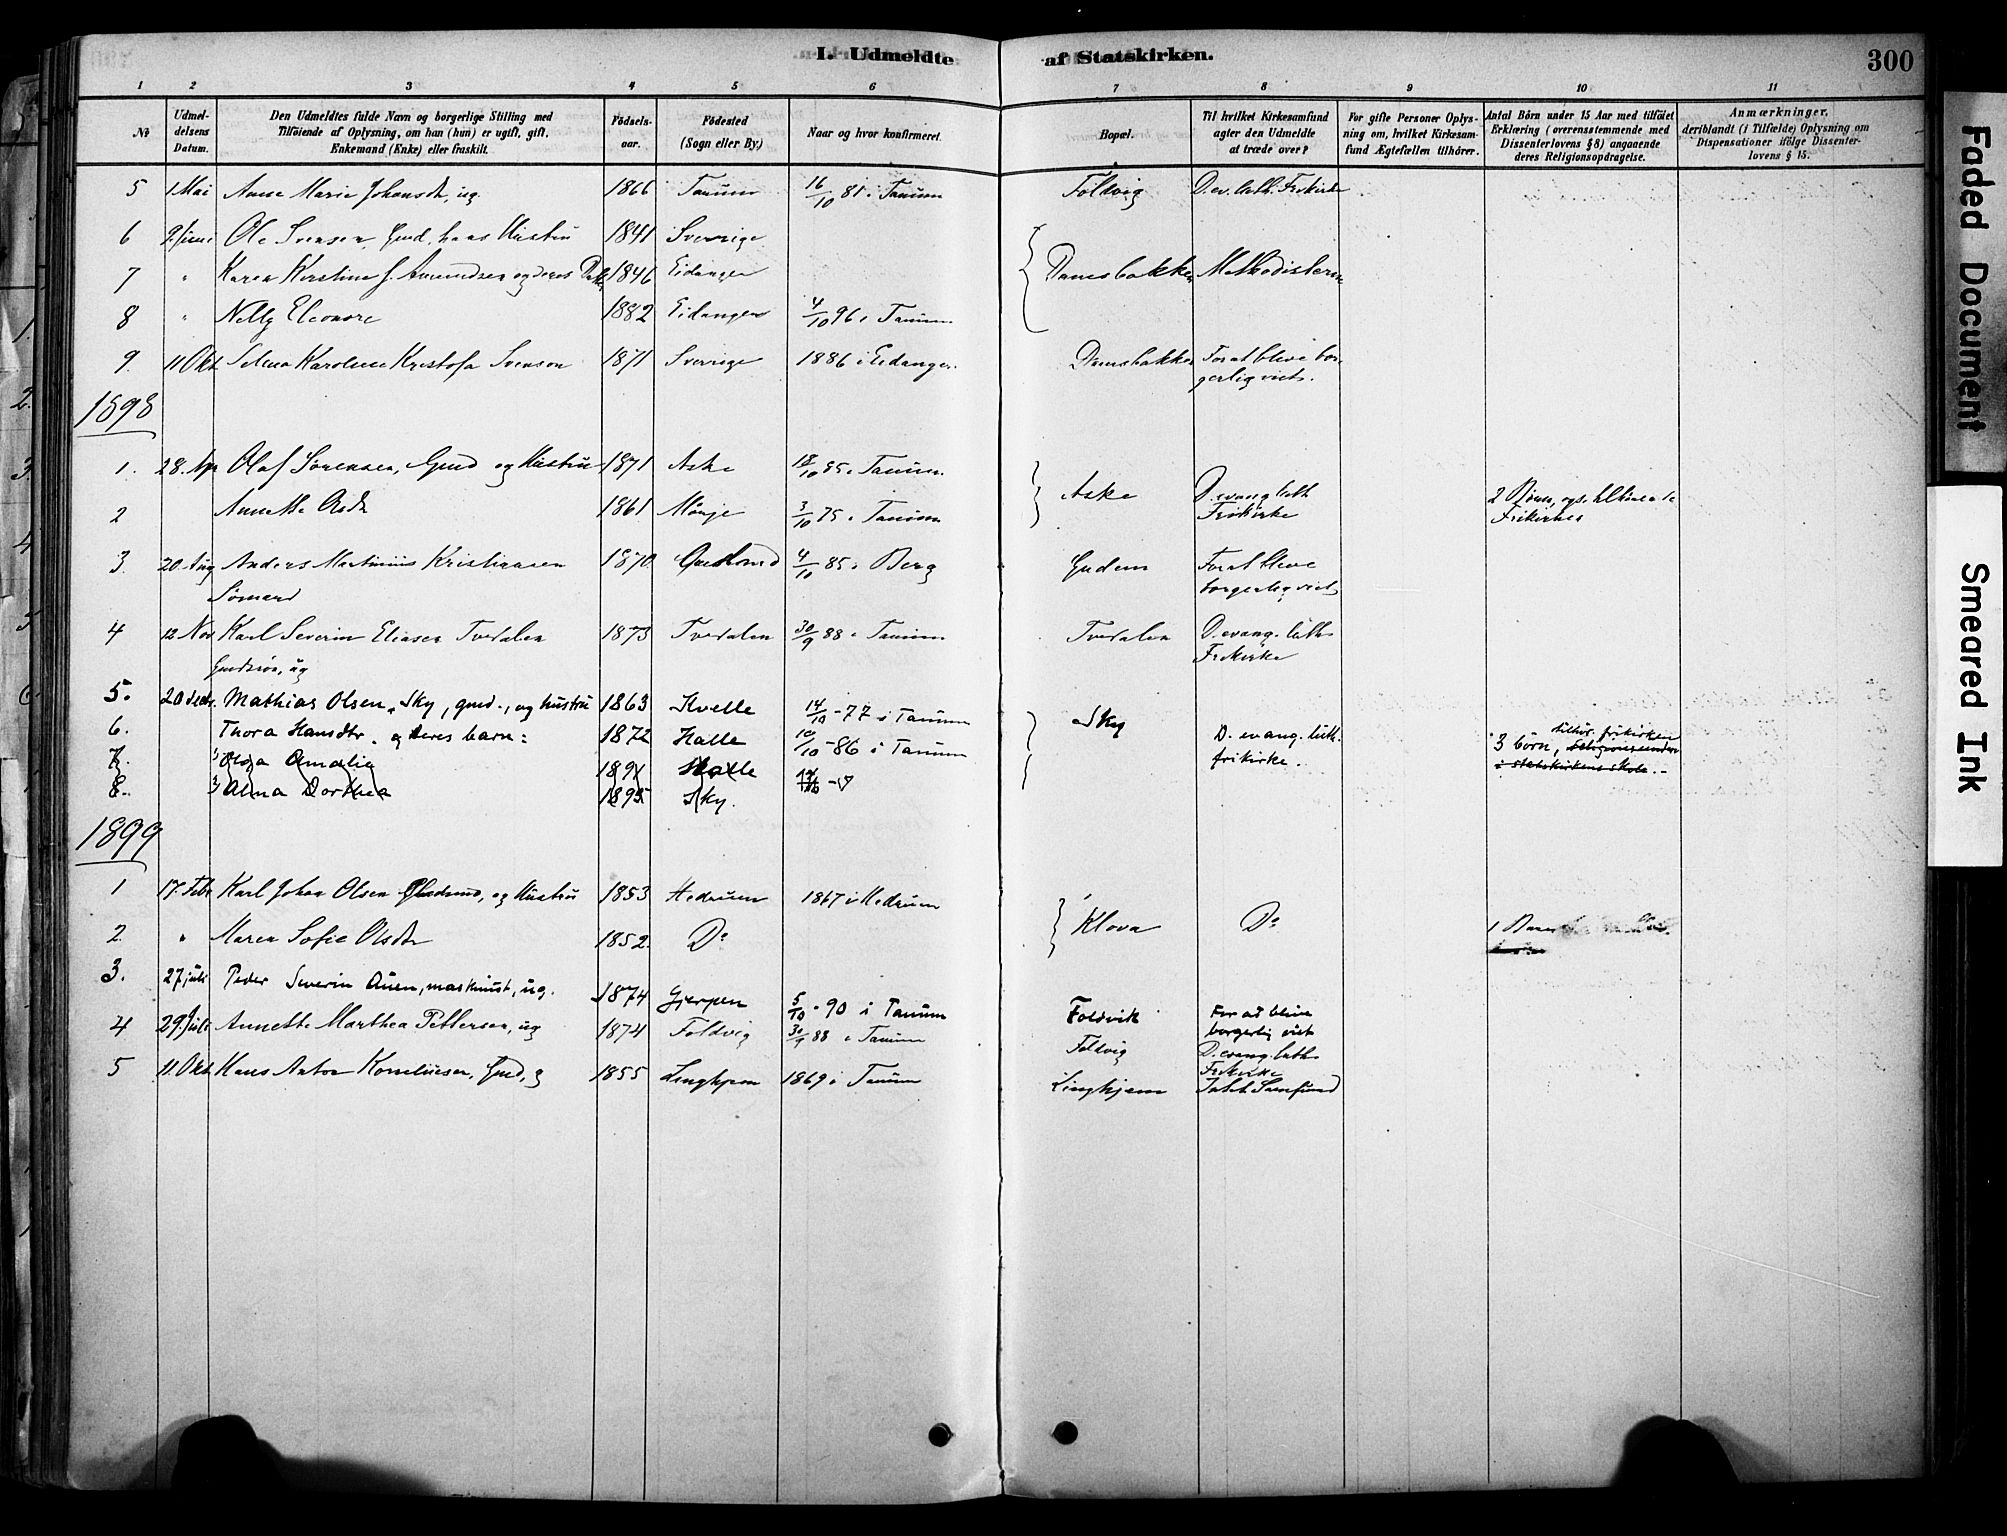 I. Udmeldte af Statskirken. 300
1 2 3 4 5 6 7 8 9 10 11
№
Udmeldelsens Datum.
Den Udmeldtes fulde Navn og borgerlige Stilling med Tilföiende af Oplysning, om han (hun) er ugift, gift, Enkemand (Enke) eller fraskilt.
Födselsaar.
Födested (Sogn eller By.)
Naar og hvor konfirmeret.
Bopæl.
Til hvilket Kirkesamfund agter den Udmeldte at træde over?
For gifte Personer Oplysning om, hvilket Kirkesamfund Ægtefællen tilhörer.
Antal Börn under 15 Aar med tilföiet Erklæring (overensstemmende med Dissenterlovens § 8) angaaende deres Religionsopdragelse.
Anmærkninger, deriblandt (i Tilfælde) Oplysning om Dispensationer ifölge Dissenterlovens § 15.
5 1 Mai Anne Marie Johansdtr, ug. 1866 Tanum 16/10 81 i Tanum Foldvig D. ev. luth. Frikirke
6 2 juni Ole Svensen, Gmd, hans Hustru 1841 Sverrige
7 " Karen Kirstine J. Amundsen og deres Datter 1846 Eidanger Danesbakken Methodisterne
8 " Nelly Eleonore 1882 Eidanger 4/10 96 i Tanum
9. 11 Okt Selma Karoline Kristofa Svenson 1871 Sverrige 1886 i Eidanger. Danesbakken For at blive borgerlig viet.
1898
1. 28. Apr Olaf Sørensen, Gmd og Hustru 1871 Aske 18/10 85 i Tanum.
2 Annette Olsdtr 1861 Mønje 3/10 75 i Tanum Aske D. evang. luth Frikirke 2 Børn, ops. tilhøre de Frikirken
3. 20. Aug Anders Martinius Kristiansen 1870 4/10 85 i Berg Gudem For at blive borgerlig viet
Sømand
4 12 Nov Karl Severin Eliasen Tvedalen 1873 Tvedalen 30/9 88 i Tanum Tvedalen D. evang. luth. Frikirke
Gmdssøn, ug
5. 20 dedr. Mathias Olsen, Sky, gmd., og hustru 1863 Kvelle 14/10 - 77 i Tanum Sky
6. Thora Hansdtr. og deres barn: 1872 Halle 10/10 - 86 i Tanum D. evang. luth. frikirke. 3 börn, tilhör. frikirken religionsunderv i statskirkens skole. -
7. 1) Olga Amalie 1891 Halle
8. 2) Alma Dorthea 1895 Sky.
1899
1 17. Febr Karl Johan Olsen, og Hustru 1853 Hedrum 1867 i Hedrum
2. " Maren Sofie Olsdtr 1852. Do Klova Do 1 Barn
3. 27 juli Peder Severin Auen, maskinist, ug. 1874 Gjerpen 5/10 - 90 i Tanum Foldvik For at blive borgerlig viet
4 29. Juli Annette Marthea Pettersen, ug 1874 Foldvig 30/9 88 i Tanum Foldvig D. evang. luth. Frikirke
5 11 Okt Hans Anton Korneliusen, Gmd, g 1855 Linghjem 1869 i Tanum Linghjem
Faded Document
Smeared Ink